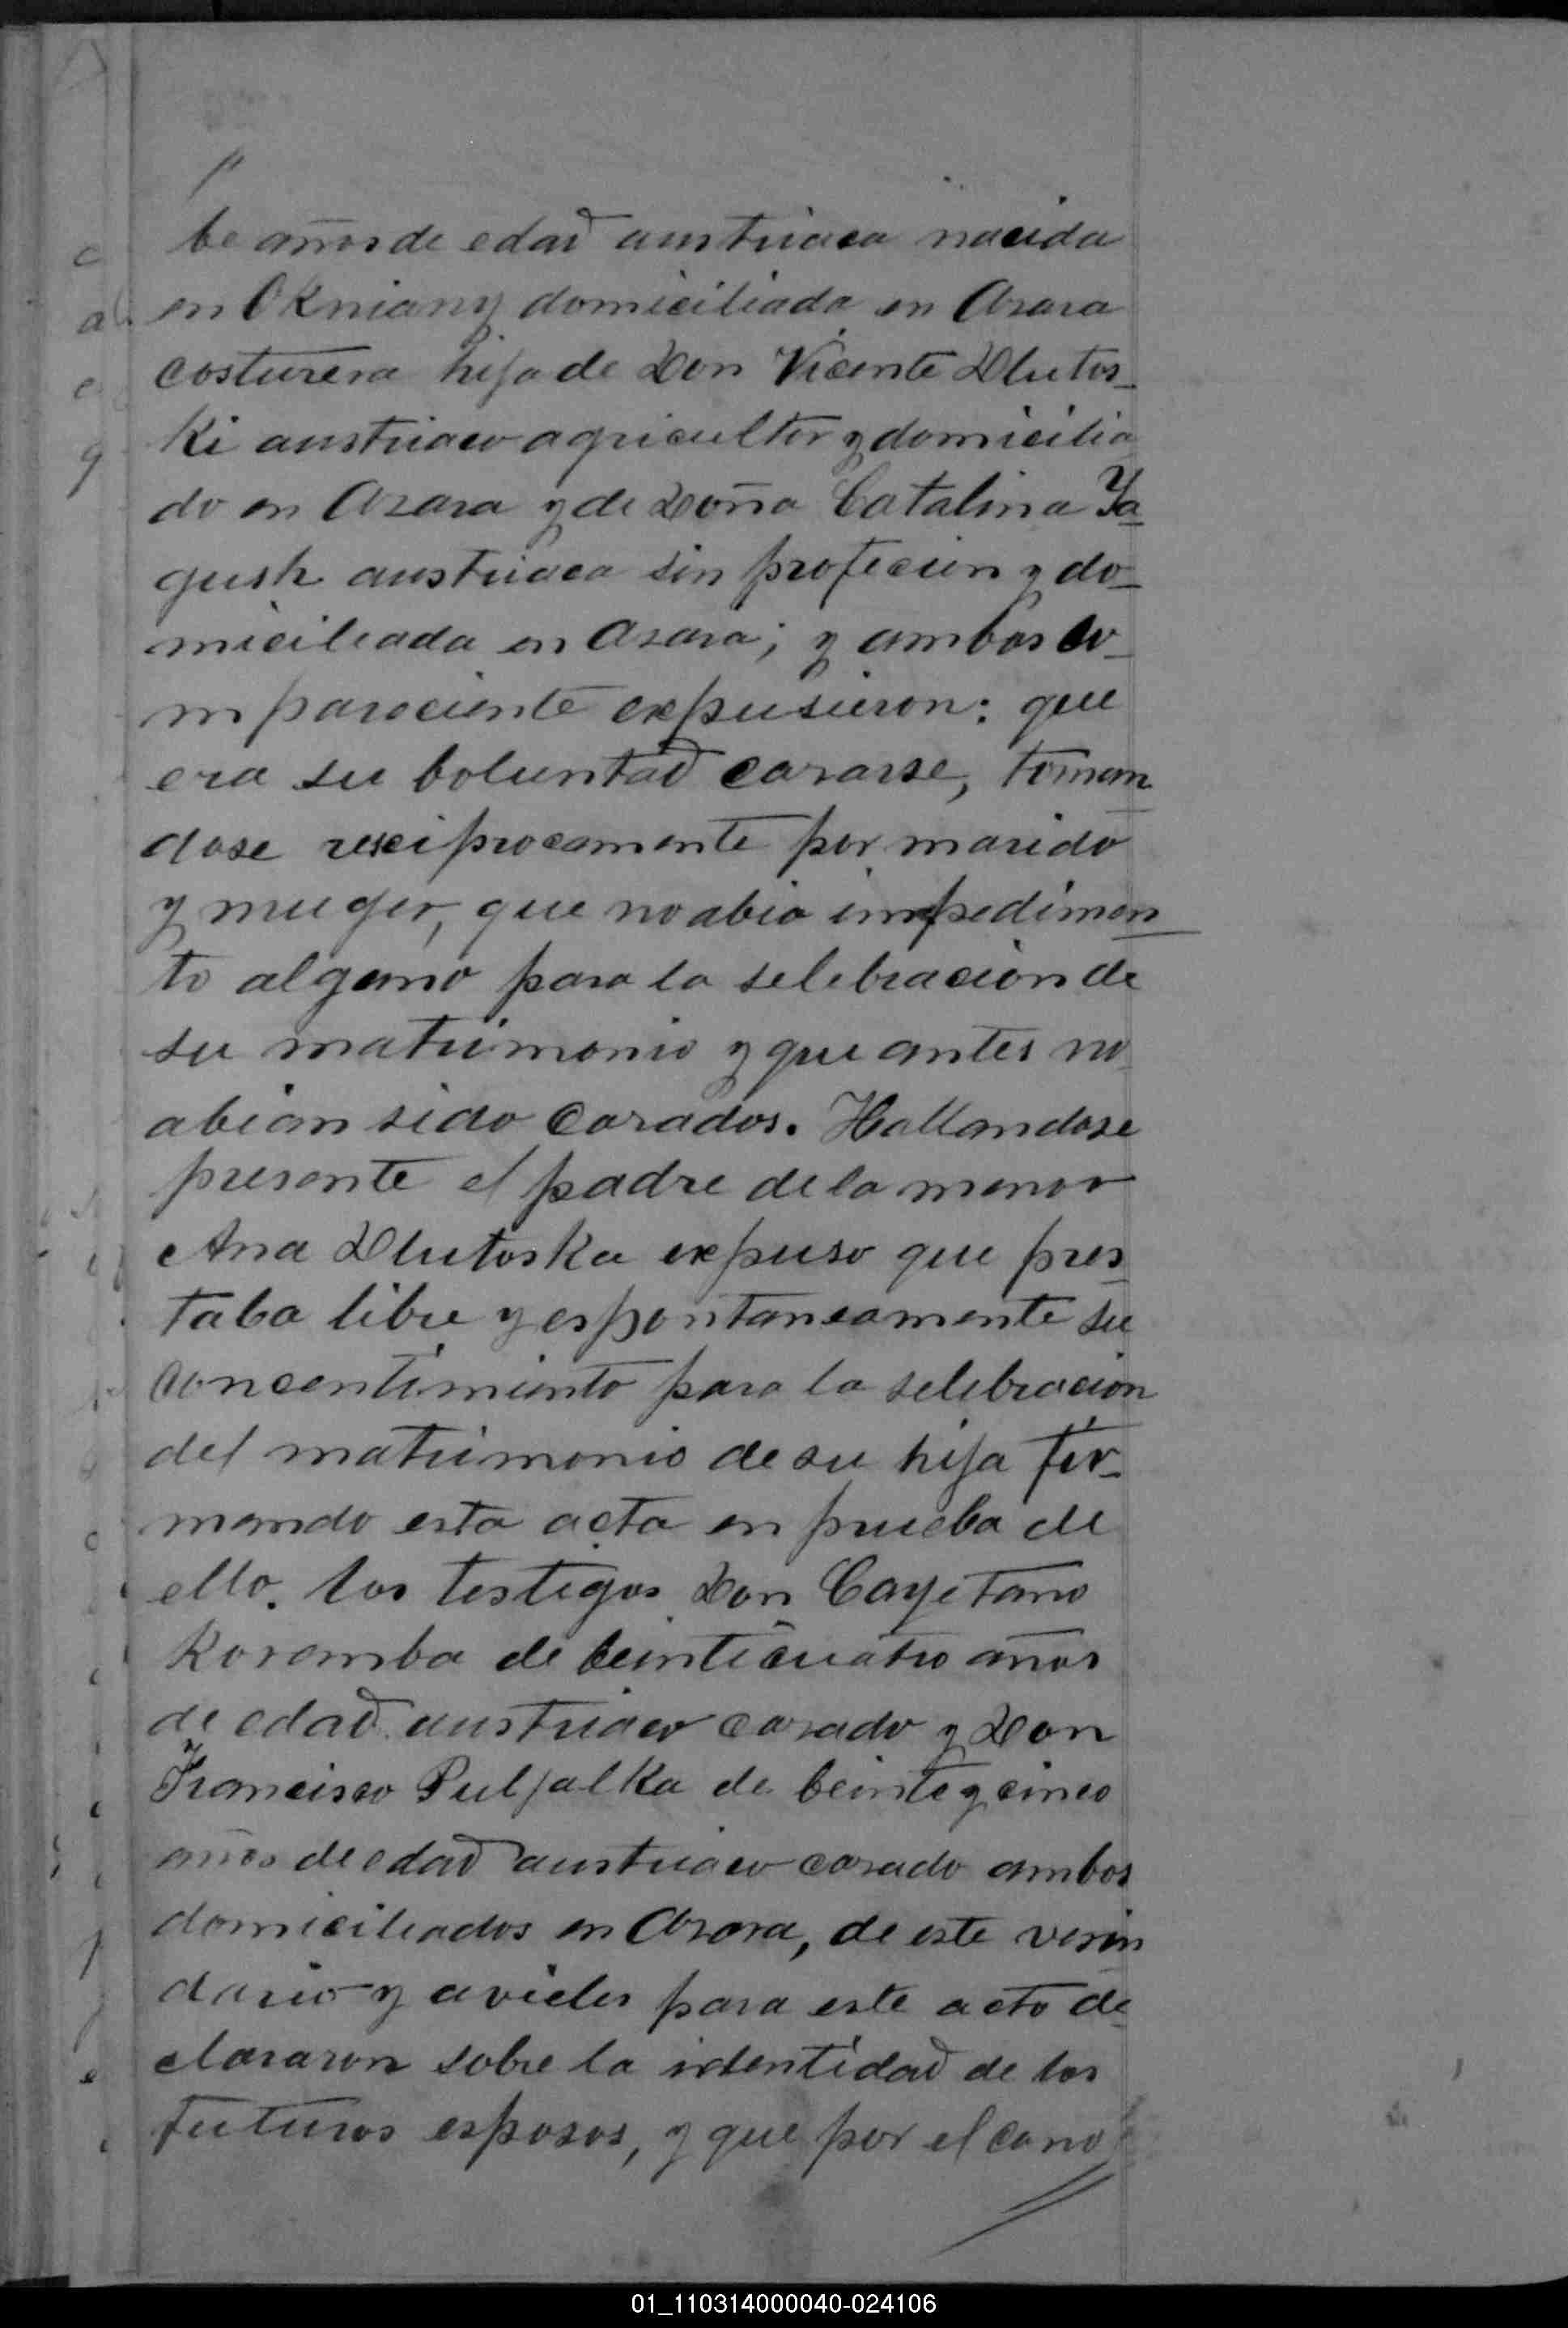 be años de edad austriaca nacida
en Okniany domiciliada en Azara
costurera hija de Don Vicente Dlutos-
ki austriaco agricultor y domicilia
do en Azara y de Doña Catalina Ya-
gush austriaca sin profecion y do-
miciliada en Azara; y ambos co-
mpareciente expusieron: que
era su boluntad casarse, toman
dose reciprocamente por marido
y muger, que no abia impedimen
to alguno para la selebracion de
su matrimonio y que antes no
abian sido casados. Hallandose
presente el padre de la menor
Ana Dlutoska expuso que pres-
taba libre y espontaneamente su
concentimiento para la selebracion
del matrimonio de su hija fir-
mando esta acta en prueba de
ello. los testigos Don Cayetano
Koromba de beinticuatro años
de edad austriaco casado y Don
Francisco Puljalka de beinte y cinco
años de edad austriaco casado ambos
domiciliados en Azara, de este vesin
dario y aviles para este acto de-
clararon sobre la identidad de los
futuros esposos, y que por el cono
01_110314000040-024106